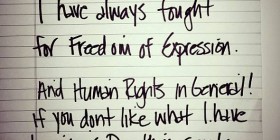 I have always fought
for Freedom of Expression.
And Human Rights in General!
If you dont like what I have